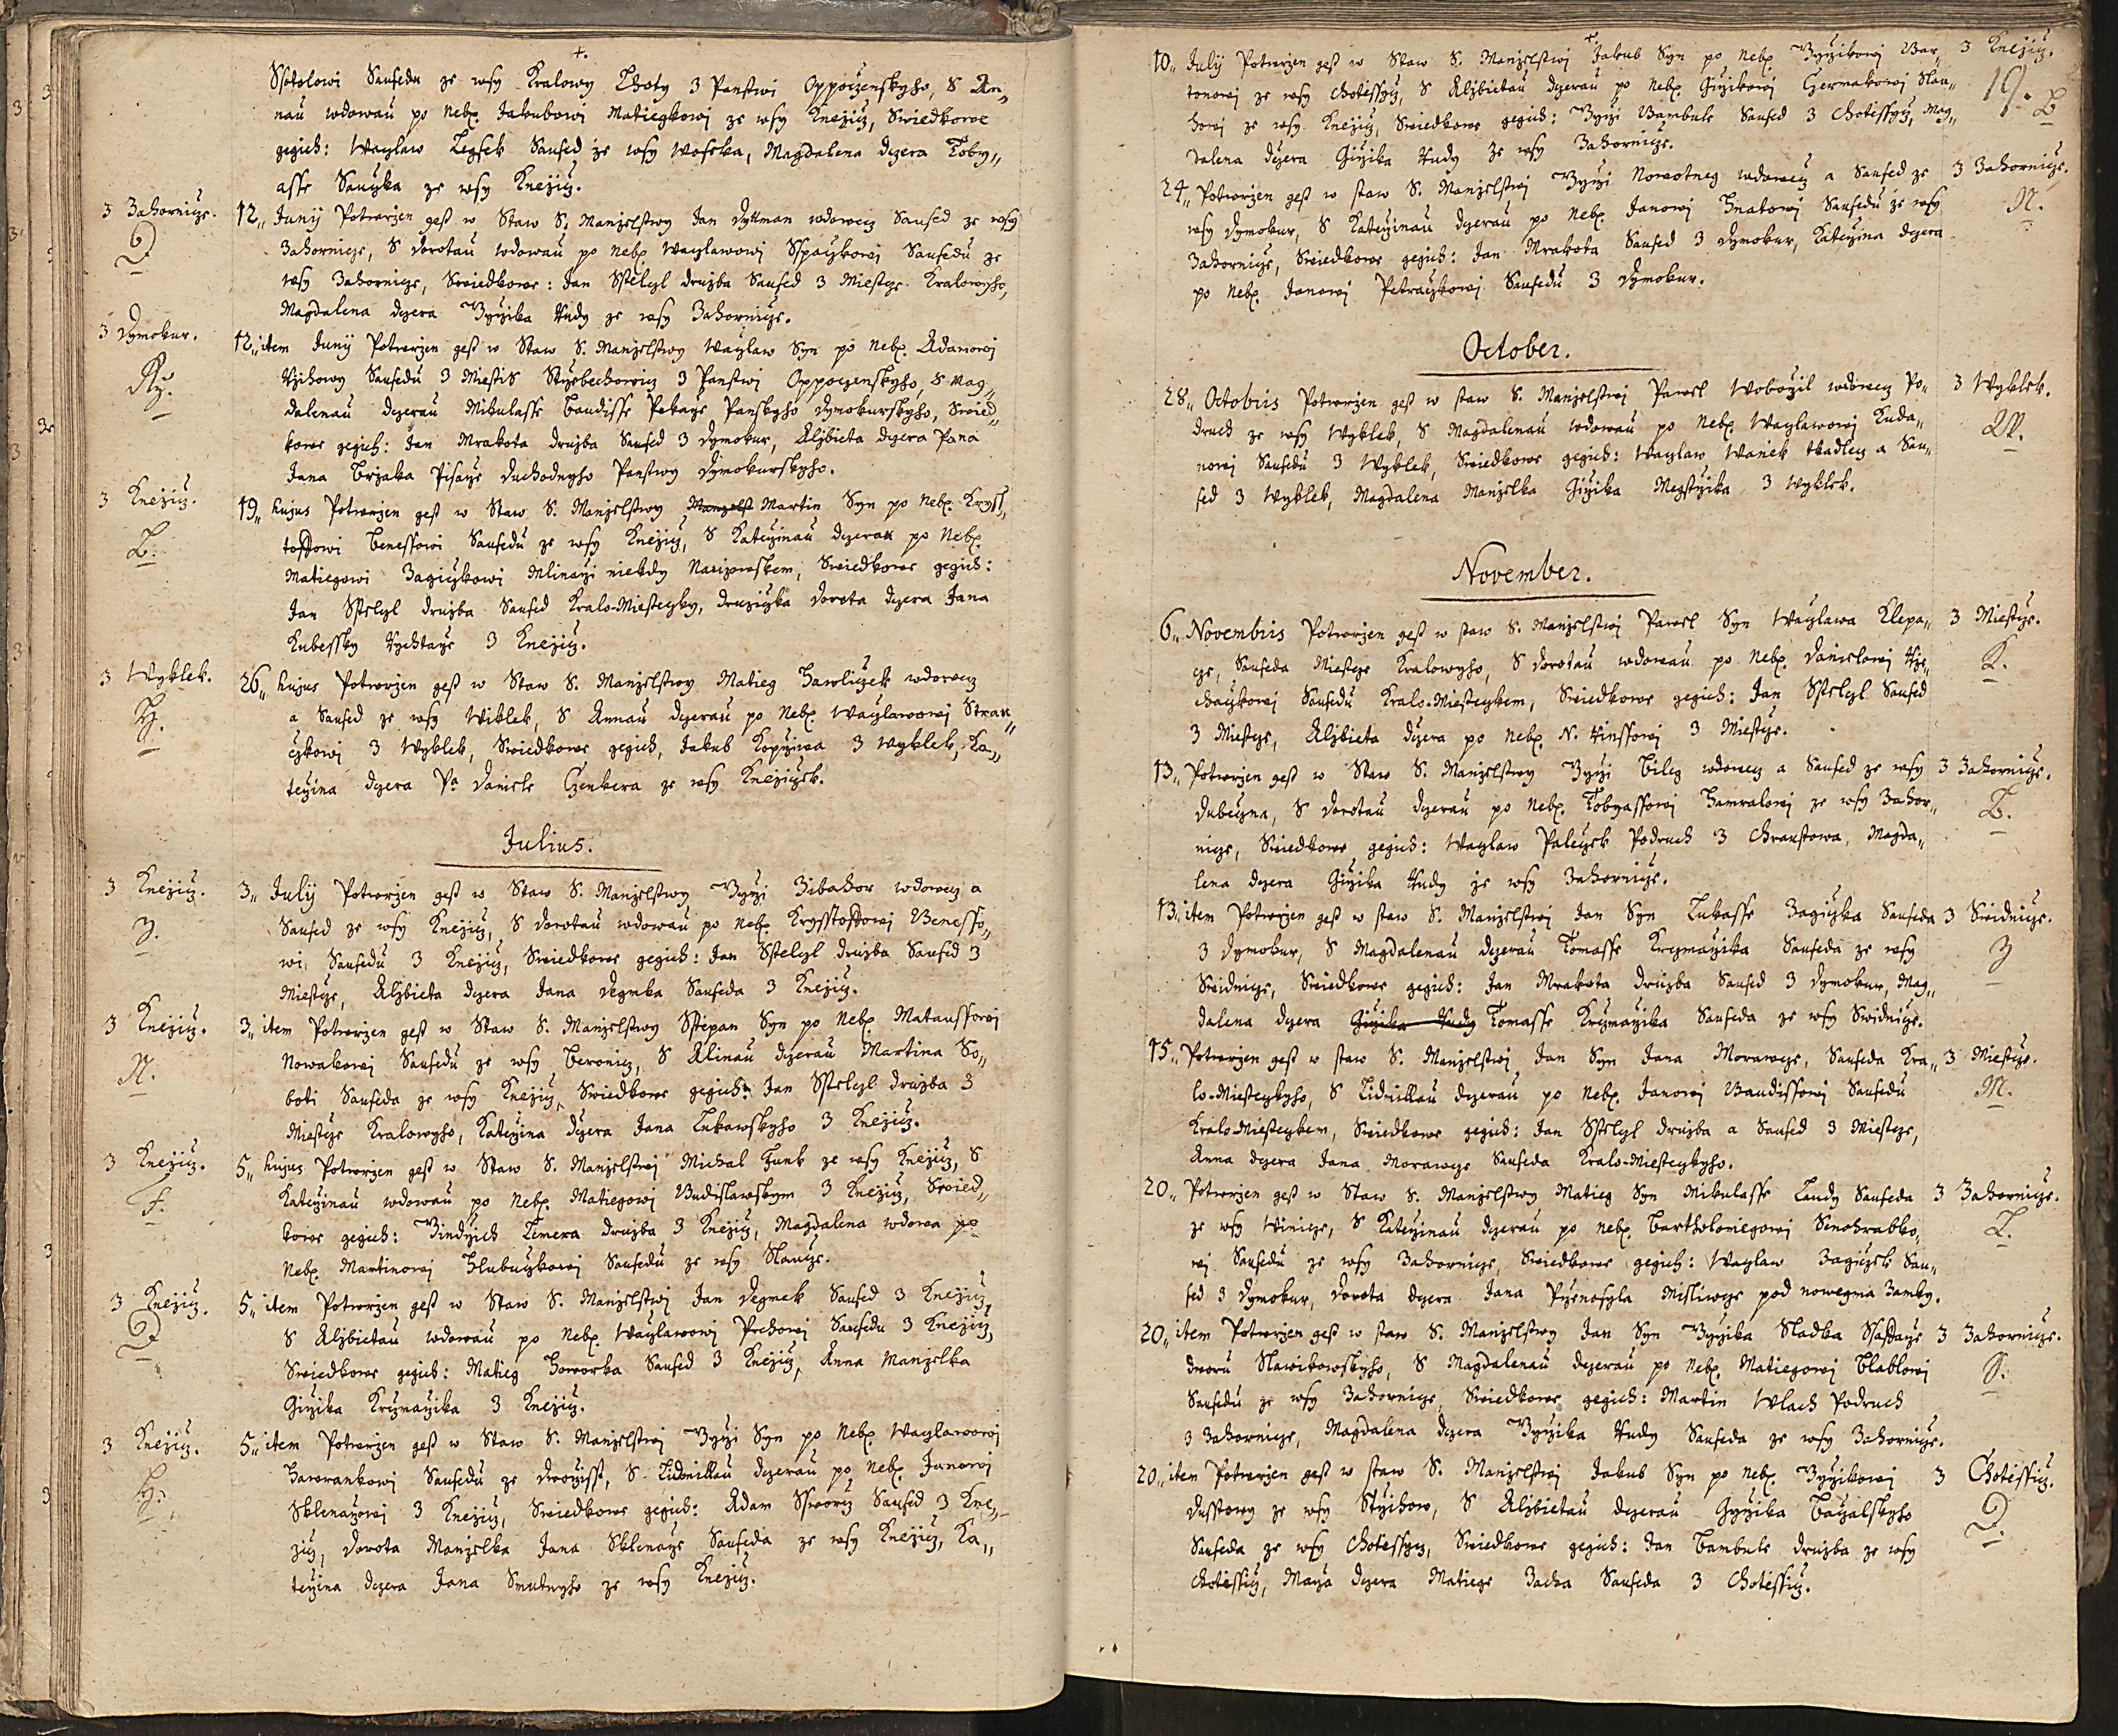 +.
Sstolowi Sauseda ze wsy Kralowy Lhoty z Panstwi Oppoczenskyho, S An„
nau wdowau po Neb. Jakubowi Matiegkowi ze wsy Knezicz, Swiedkowe
gegich: Waczlaw Saused ze wsy Woseka, Magdalena dczera Toby„
asse Sauczka ze wsy Knezicz.
z Zahornicze.
D
12„ Junij Potwrzen gest w Staw S. Manzelstwy Jan Dyttman wdowecz Saused ze wsy
Zahornicze, S Dorotau wdowau po Neb. Waczlawowi Sspaczkowi Sausedu ze
wsy Zahornicze, Swiedkowe: Jan Sstelczl druzba Saused z Miestcze Kralowyho,
Magdalena dczera Gyrzika Rudy ze wsy Zahornicze.
z Dymokur.
Rz.
12„ item Junij Potwrzen gest w Staw S. Manzelstwy Waczlaw Syn po Neb. Adamowi
Rzihowy Sausedu z Miestis z Panstwi Oppoczenskyho, S Mag„
dalenau dczerau Mikulasse Baudisse Pekarze Panskyho Dymokurskyho, Swied„
kowe gegich: Jan Mrakota druzba Saused z Dymokur, Alzbieta dczera Pana
Jana Brzaka Pisarze Duchodnyho Panstwy Dymokurskyho.
z Knezicz.
B.
19„ hujus Potwrzen gest w Staw S. Manzelstwy Manzelst Martin Syn po Neb. Kryss„
toffowi Benessowi Sausedu ze wsy Knezicz, S Katerzinau dczerau po Neb.
Matiegowi Zagiczkowi Mlinarzi niekdy, Swiedkowe gegich:
Jan Sstelczl druzba Saused Kralo-Miesteczky, druziczka Dorota dczera Jana
Kubessky Rychtarze z Knezicz.
z Wyklek.
H.
26„ hujus Potwrzen gest w Staw S. Manzelstwy Matieg Hawliczek wdowecz
a Saused ze wsy Wiklek, S Annau dczerau po Neb. Waczlawowi Strau„
czkowi z Wyklek, Swiedkowe gegich, Jakub Koprziwa z Wyklek, Ka„
terzina dczera Pa Daniele Czenkera ze wsy Knezicek.
Julius.
z Knezicz.
Z.
3„ Julij Potwrzen gest w Staw S. Manzelstwy Gyrzi Zibahor wdowecz a
Saused ze wsy Knezicz, S Dorotau wdowau po Neb. Krysstoffowi Benesso„
wi Sausedu z Knezicz, Swiedkowe gegich: Jan Sstelczl druzba Saused z
Miestcze, Alzbieta dczera Jana Degmka Sauseda z Knezicz.
z Knezicz.
N.
3„ item Potwrzen gest w Staw S. Manzelstwy Sstepan Syn po Neb. Mataussowi
Nowakowi Sausedu ze wsy Beronicz, S Alinau dczerau Martina So„
boti Sauseda ze wsy Knezicz, Swiedkowe gegich: Jan Sstelczl druzba z
Miestcze Kralowyho, Katerzina dczera Jana Lukawskyho z Knezicz.
z Knezicz.
F.
5„ hujus Potwrzen gest w Staw S. Manzelstwi Michal Funk ze wsy Knezicz, S
Katerzinau wdowau po Neb. Matiegowi Budislawskym z Knezicz, Swied„
kowe gegich: Jindrzich Temera druzba z Knezicz, Magdalena wdowa po
Neb. Martinowi Hlubuczkowi Sausedu ze wsy Slaucze.
z Knezicz.
D.
5„ item Potwrzen gest w Staw S. Manzelstwi Jan Degmek Saused z Knezicz,
S Alzbietau wdowau po Neb. Waczlawowi Prchowi Sausedu z Knezicz,
Swiedkowe gegich: Matieg Howorka Saused z Knezicz, Anna Manzelka
Girzika Krczmarzika z Knezicz.
z Knezicz.
H.
5„ item Potwrzen gest w Staw S. Manzelstwi Gyrzi Syn po Neb. Waczlawowi
Hawrankowi Sausedu ze Dworzisst, S Lidmillau dczerau po Neb. Janowi
Sklenarzowi z Knezicz, Swiedkowe gegich: Adam Sskworcz Saused z Kne„
zicz, Dorota Manzelka Jana Sklenarze Sauseda ze wsy Knezicz, Ka„
terzina dczera Jana Smutnyho ze wsy Knezicz.
+.
10„ Julij Potwrzen gest w Staw S. Manzelstwi Jakub Syn po Neb. Gyrzikowi Bar„
tonowi ze wsy Chotessycz, S Alzbietau dczerau po Neb. Girzikowi Czermakowi Slau„
howi ze wsy Knezicz, Swiedkowe gegich: Gyrzi Bambule Saused z Chotessycz, Mag„
dalena dczera Girzika Rudy ze wsy Zahornicze.
z Knezicz.
19.
B
24„ Potwrzen gest w staw S. Manzelstwi Gyrzi Nowotneg wdowecz a Saused ze
wsy Dymokur, S Katerzinau dczerau po Neb. Janowi Hnatowi Sausedu ze wsy
Zahornicze, Swiedkowe gegich: Jan Mrakota Saused z Dymokur, Katerzina dczera
po Neb. Janowi Petraczkowi Sausedu z Dymokur.
z Zahornicze.
N.
October.
28„ Octobris Potwrzen gest w staw S. Manzelstwi Pawel Woborzil wdowecz Po„
druch ze wsy Wyklek, S Magdalenau wdowau po Neb. Waczlawowi Kuda„
nowi Sausedu z Wyklek, Swiedkowe gegich: Waczlaw Wanek tkadlecz a Sau„
sed z Wyklek, Magdalena Manzelka Girzika Megstrzika z Wyklek.
z Wyklek.
W.
November.
6„ Novembris Potwrzen gest w staw S. Manzelstwi Pawel Syn Waczlawa Klepa„
cze, Sauseda Miestcze Kralowyho, S Dorotau wdowau po Neb. Danielowi Rze„
chaczkowi Sausedu Kralo-Miesteczkem, Swiedkowe gegich: Jan Sstelczl Saused
z Miestcze, Alzbieta dczera po Neb. N. Kinssowi z Miestcze.
z Miestcze.
K.
13„ Potwrzen gest w Staw S. Manzelstwy Gyrzi Bileg wdowecz a Saused ze wsy
Dubeczna, S Dorotau dczerau po Neb. Tobyassowi Hamralowi ze wsy Zahor„
nicze, Swiedkowe gegich: Waczlaw Paleczek Podruch z Chraustowa, Magda„
lena dczera Girzika Rudy ze wsy Zahornicze.
z Zahornicze.
B.
13„ item Potwrzen gest w staw S. Manzelstwi Jan Syn Lukasse Zagiczka Sauseda
z Dymokur, S Magdalenau dczerau Tomasse Krczmarzika Sauseda ze wsy
Swidnicze, Swiedkowe gegich: Jan Mrakota druzba Saused z Dymokur, Mag„
dalena dczera Girzika Rudy Tomasse Krczmarzika Sauseda ze wsy Swidnicze.
z Swidnicze.
Z
15„ Potwrzen gest w staw S. Manzelstwi Jan Syn Jana Morawcze, Sauseda Kra„
lo-Miesteczkyho, S Lidmillau dczerau po Neb. Janowi Baudissowi Sausedu
Kralo-Miesteczkem, Swiedkowe gegich: Jan Sstelczl druzba a Saused z Miestcze,
Anna dczera Jana Morawcze Sauseda Kralo-Miesteczkyho.
z Miestcze.
M.
20„ Potwrzen gest w Staw S. Manzelstwy Matieg Syn Mikulasse Laudy Sauseda
ze wsy Winicze, S Katerzinau dczerau po Neb. Bartholomiegowi Senohrabko„
wi Sausedu ze wsy Zahornicze, Swiedkowe gegich: Waczlaw Zagiczek Sau„
sed z Dymokur, Dorota dczera Jana Przenosyla Misliwcze pod nowegma Zamky.
z Zahornicze.
L.
20„ item Potwrzen gest w staw S. Manzelstwy Jan Syn Gyrzika Sladka Ssaffarze
dworu Slawikowskyho, S Magdalenau dczerau po Neb. Matiegowi Blablowi
Sausedu ze wsy Zahornicze, Swiedkowe gegich: Martin Wlach Podruch
z Zahornicze, Magdalena dczera Gyrzika Rudy Sauseda ze wsy Zahornicze.
z Zahornicze.
S.
20„ item Potwrzen gest w staw S. Manzelstwi Jakub Syn po Neb. Gyrzikowi
Dusskowy ze wsy Strzihow, S Alzbietau dczerau Gyrzika Barzalskyho
Sauseda ze wsy Chotessycz, Swiedkowe gegich: Jan Bambule druzba ze wsy
Chotessicz, Marya dczera Matiege Zacha Sauseda z Chotessicz.
z Chotessicz.
D.